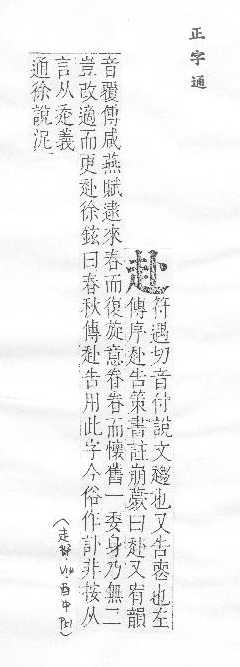 正字通
赴
符遇切音付說文趨也又告喪也左
傳序赴告策書註崩薨曰赴又宥韻
音覆傳咸燕賦逮來春而復旋意眷眷而懷舊一委身乃無二
豈改適而更赴徐鉉曰春秋傳赴告用此字今俗作訃非按从
言从走義
通徐說泥
(走部 酉中